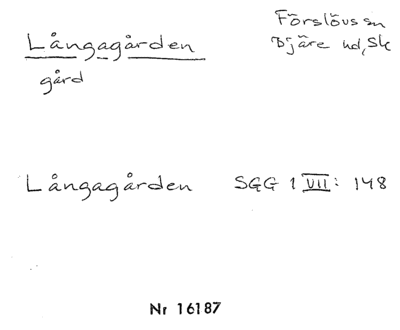 Långagården
Förslövs sn
Bjäre hd, Sk
gård
Långagården SGG 1 VII: 148
Nr 16187